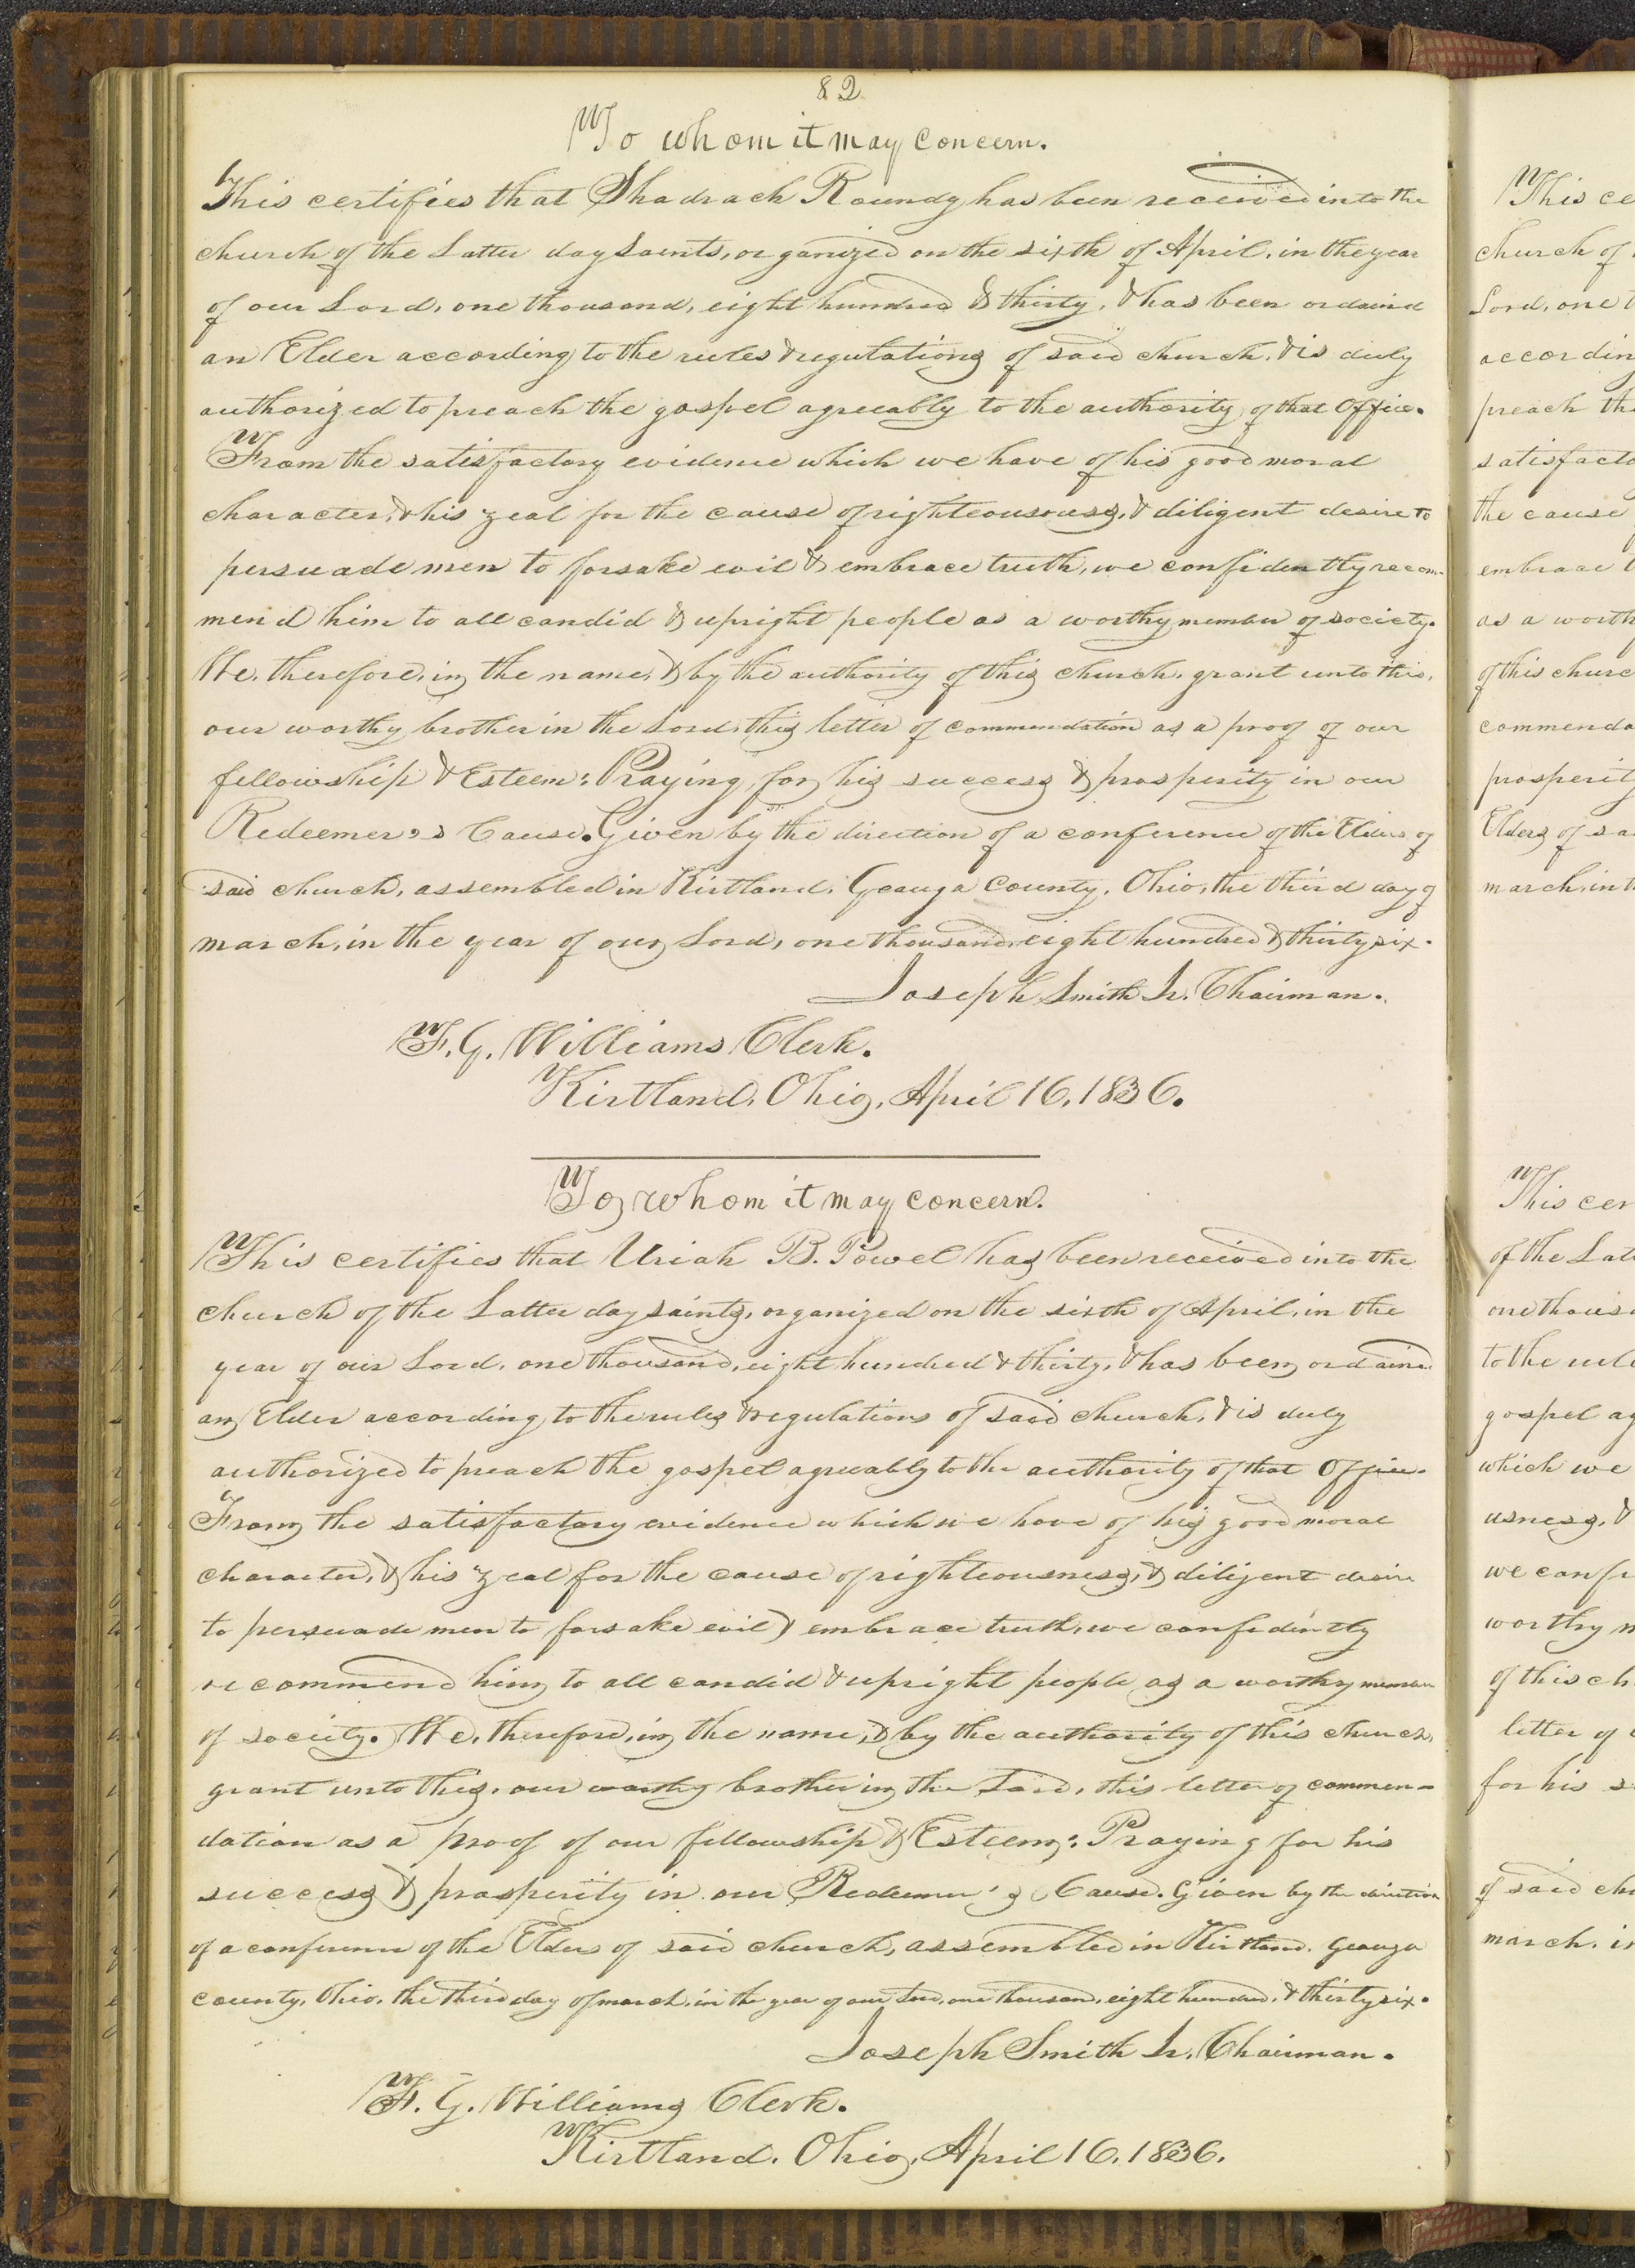 82
To whom it may concern.
This certifies that Shadrach Roundy has been received into the
church of the Latter day Saints, organized on the sixth of April, in the year
of our Lord, one thousand, eight hundred & thirty, & has been ordaind
an Elder according to the rules & regulations of said church, & is duly
authorized to preach the gospel agreeably to the authority of that Office.
From the satisfactory evidence which we have of his good moral
character, & his zeal for the cause of righteousness, & diligent desire to
persuade men to forsake evil & embrace truth, we confidently recom-
mend him to all candid & upright people as a worthy member of society.
We, therefore, in the name, & by the authority of this church, grant unto this,
our worthy brother in the Lord, this letter of commendation as a proof of our
fellowship & Esteem: Praying, for his success & prosperity in our
Redeemer's Cause. Given by the direction of a conference of the Elders of
said church, assembled in Kirtland, Geauga County, Ohio, the third day of
march, in the year of our Lord, one thousand, eight hundred & thirty six.
Joseph Smith Jr. Chairman.
F. G. Williams Clerk.
Kirtland, Ohio, April 16, 1836.
To whom it may concern.
This certifies that Uriah B. Powel has been received into the
church of the Latter day saints, organized on the sixth of April, in the
year of our Lord, one thousand, eight hundred & thirty, & has been ordained
an Elder according to the rules & regulations of said church, & is duly
authorized to preach the gospel agreeably to the authority of that Office.
From the satisfactory evidence which we have of his good moral
character, & his zeal for the cause of righteousness, & diligent desire
to persuade men to forsake evil & embrace truth, we confidently
recommend him to all candid & upright people as a worthy member
of society. We, therefore, in the name, & by the authority of this church,
grant unto this, our worthy brother in the Lord, this letter of commen-
dation as a proof of our fellowship & Esteem: Praying for his
success & prosperity in our Redeemer's Cause. Given by the direction
of a conference of the Elders of said church, assembled in Kirtland, Geauga
county, Ohio, the third day of march, in the year of our Lord, one thousand, eight hundred, & thirty six.
Joseph Smith Jr. Chairman.
F. G. Williams Clerk.
Kirtland, Ohio, April 16, 1836.
This ce
church of
Lord, one t
accordin
preach th
satisfacto
the cause
embrace t
as a worth
of this churc
commenda
prosperity
Elders of sa
march, in t
This cer
of the Latt
one thous
to the rule
gospel ag
which we
usness, &
we confi
worthy m
of this ch
letter of c
for his s
of said chu
march, in